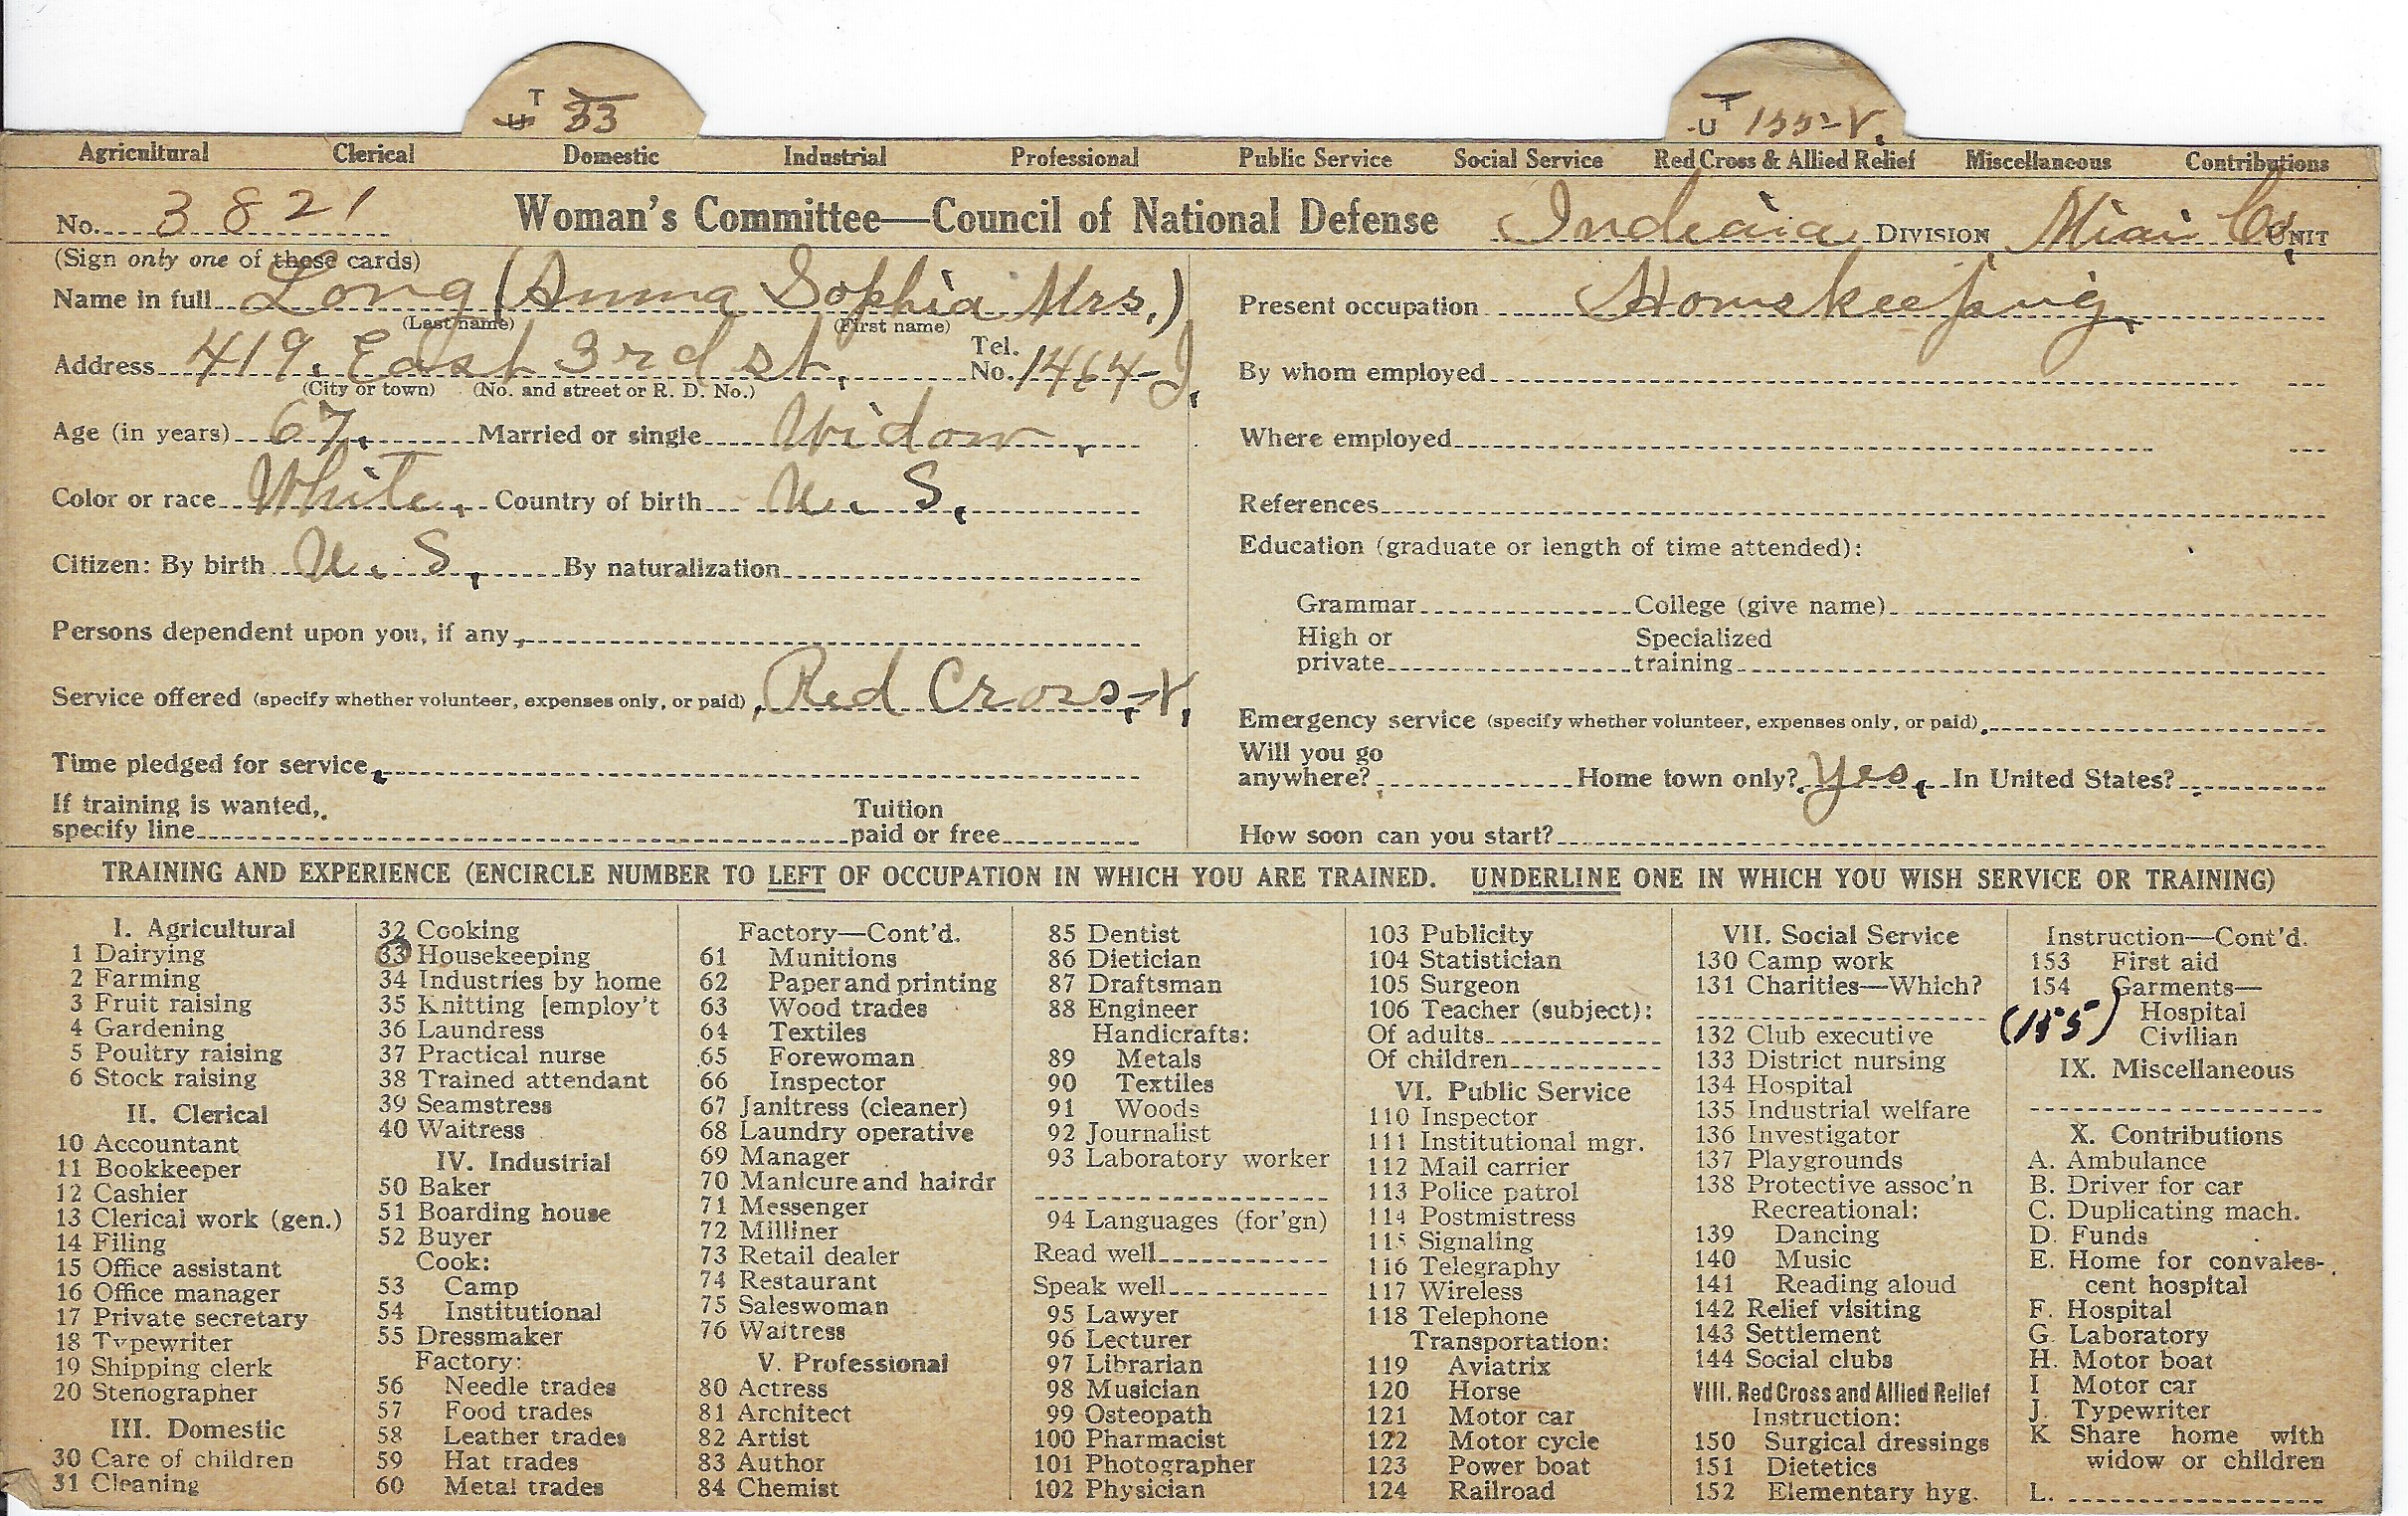 T
U 33
T
U 155-V.
Agricultural Clerical Domestic Industrial Professional Public Service Social Service Red Cross & Allied Relief Miscellaneous Contributions
No. 3821 Woman's Committee—Council of National Defense Indiaia DIVISION Miai Co. UNIT
(Sign only one of these cards)
Name in full Long (Anna Sophia Mrs.)
(Last name) (First name)
Address 419. East 3rd st. Tel. No. 1464-J.
(City or town) (No. and street or R. D. No.)
Age (in years) 67. Married or single Widow.
Color or race White. Country of birth U. S.
Citizen: By birth U. S. By naturalization
Persons dependent upon you, if any
Service offered (specify whether volunteer, expenses only, or paid) Red Cross-V.
Time pledged for service
If training is wanted,
specify line
Tuition
paid or free
Present occupation Homskeeping
By whom employed
Where employed
References
Education (graduate or length of time attended):
Grammar College (give name)
High or
private
Specialized
training
Emergency service (specify whether volunteer, expenses only, or paid)
Will you go
anywhere? Home town only? Yes. In United States?
How soon can you start?
TRAINING AND EXPERIENCE (ENCIRCLE NUMBER TO LEFT OF OCCUPATION IN WHICH YOU ARE TRAINED. UNDERLINE ONE IN WHICH YOU WISH SERVICE OR TRAINING)
I. Agricultural
1 Dairying
2 Farming
3 Fruit raising
4 Gardening
5 Poultry raising
6 Stock raising
II. Clerical
10 Accountant
11 Bookkeeper
12 Cashier
13 Clerical work (gen.)
14 Filing
15 Office assistant
16 Office manager
17 Private secretary
18 Typewriter
19 Shipping clerk
20 Stenographer
III. Domestic
30 Care of children
31 Cleaning
32 Cooking
33 Housekeeping
34 Industries by home
35 Knitting [employ't
36 Laundress
37 Practical nurse
38 Trained attendant
39 Seamstress
40 Waitress
IV. Industrial
50 Baker
51 Boarding house
52 Buyer
Cook:
53 Camp
54 Institutional
55 Dressmaker
Factory:
56 Needle trades
57 Food trades
58 Leather trades
59 Hat trades
60 Metal trades
Factory—Cont'd.
61 Munitions
62 Paper and printing
63 Wood trades
64 Textiles
65 Forewoman
66 Inspector
67 Janitress (cleaner)
68 Laundry operative
69 Manager
70 Manicure and hairdr
71 Messenger
72 Milliner
73 Retail dealer
74 Restaurant
75 Saleswoman
76 Waitress
V. Professional
80 Actress
81 Architect
82 Artist
83 Author
84 Chemist
85 Dentist
86 Dietician
87 Draftsman
88 Engineer
Handicrafts:
89 Metals
90 Textiles
91 Woods
92 Journalist
93 Laboratory worker
94 Languages (for'gn)
Read well
Speak well
95 Lawyer
96 Lecturer
97 Librarian
98 Musician
99 Osteopath
100 Pharmacist
101 Photographer
102 Physician
103 Publicity
104 Statistician
105 Surgeon
106 Teacher (subject):
Of adults
Of children
VI. Public Service
110 Inspector
111 Institutional mgr.
112 Mail carrier
113 Police patrol
114 Postmistress
115 Signaling
116 Telegraphy
117 Wireless
118 Telephone
Transportation:
119 Aviatrix
120 Horse
121 Motor car
122 Motor cycle
123 Power boat
124 Railroad
VII. Social Service
130 Camp work
131 Charities—Which?
132 Club executive
133 District nursing
134 Hospital
135 Industrial welfare
136 Investigator
137 Playgrounds
138 Protective assoc'n
Recreational:
139 Dancing
140 Music
141 Reading aloud
142 Relief visiting
143 Settlement
144 Social clubs
VIII. Red Cross and Allied Relief
Instruction:
150 Surgical dressings
151 Dietetics
152 Elementary hyg.
Instruction—Cont'd.
153 First aid
154 Garments—
Hospital
(155) Civilian
IX. Miscellaneous
X. Contributions
A. Ambulance
B. Driver for car
C. Duplicating mach.
D. Funds
E. Home for convales-
cent hospital
F. Hospital
G. Laboratory
H. Motor boat
I Motor car
J. Typewriter
K Share home with
widow or children
L.